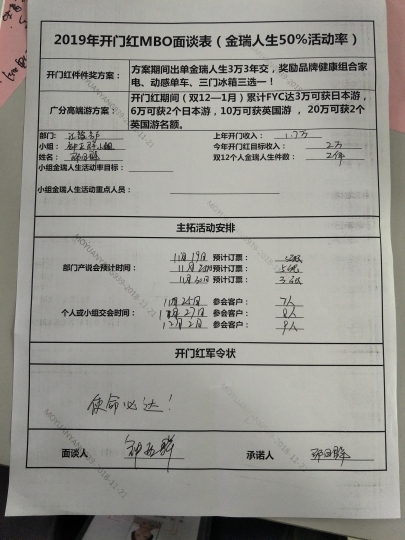 2019年开门红MBO面谈表（金瑞人生50%活动率）
开门红件件奖方案： 方案期间出单金瑞人生3万3年交，奖励品牌健康组合家
电、动感单车、三门冰箱三选一！
广分高端游方案： 开门红期间（双12—1月）累计FYC达3万可获日本游，
6万可获2个日本游，10万可获英国游 ，20万可获2个
英国游名额。
部门： 上年开门红收入： 1.7万
小组： 今年开门红目标收入： 2万
姓名： 双12个人金瑞人生件数： 2件
小组金瑞人生活动率目标：
小组金瑞人生活动重点人员：
主拓活动安排
11月19日 预计订票：
部门产说会预计时间： 11月 预计订票：
11月 预计订票：
11月25日 参会客户： 7人
个人或小组交会时间： 11月27日 参会客户： 8人
12月2日 参会客户： 9人
开门红军令状
使命必达！
面谈人 承诺人
MOYUANYANG009-2018-11-21